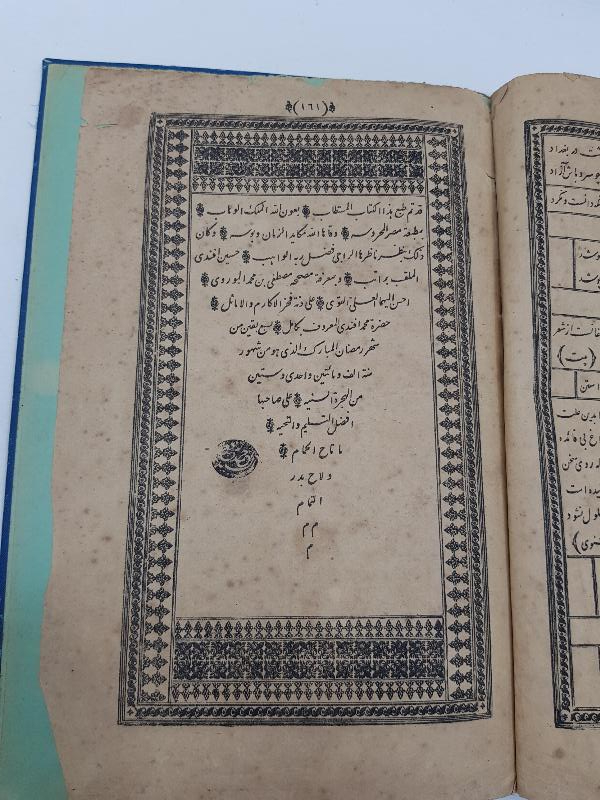 (١٦١)
قد تم طبع هذا الكتاب المستطاب بعون الله الملك الوهاب
بمطبعة مصر المحروسه وقاها الله مكايد الزمان وبوسه وكان
ذلك بنظر ناظرها الراجي فضل ربه الواهب حسين افندي
الملقب براتب وبمعرفة مصححه مصطفى بن محمد
احسن اليهما العلي القوي على ذمة فخر الاكارم والاماثل
حضرة محمد افندي المعروف بكامل لسبع بقين من
شهر رمضان المبارك الذي هو من شهور
سنة الف ومائتين واحدى وستين
من الهجرة السنيه على صاحبها
افضل التسليم والتحيه
ما ناح الحمام
ولاح بدر
التمام
م م
م
بغداد
آزاد
دانست
(بيت)
علت
روى سخن
است
نشود